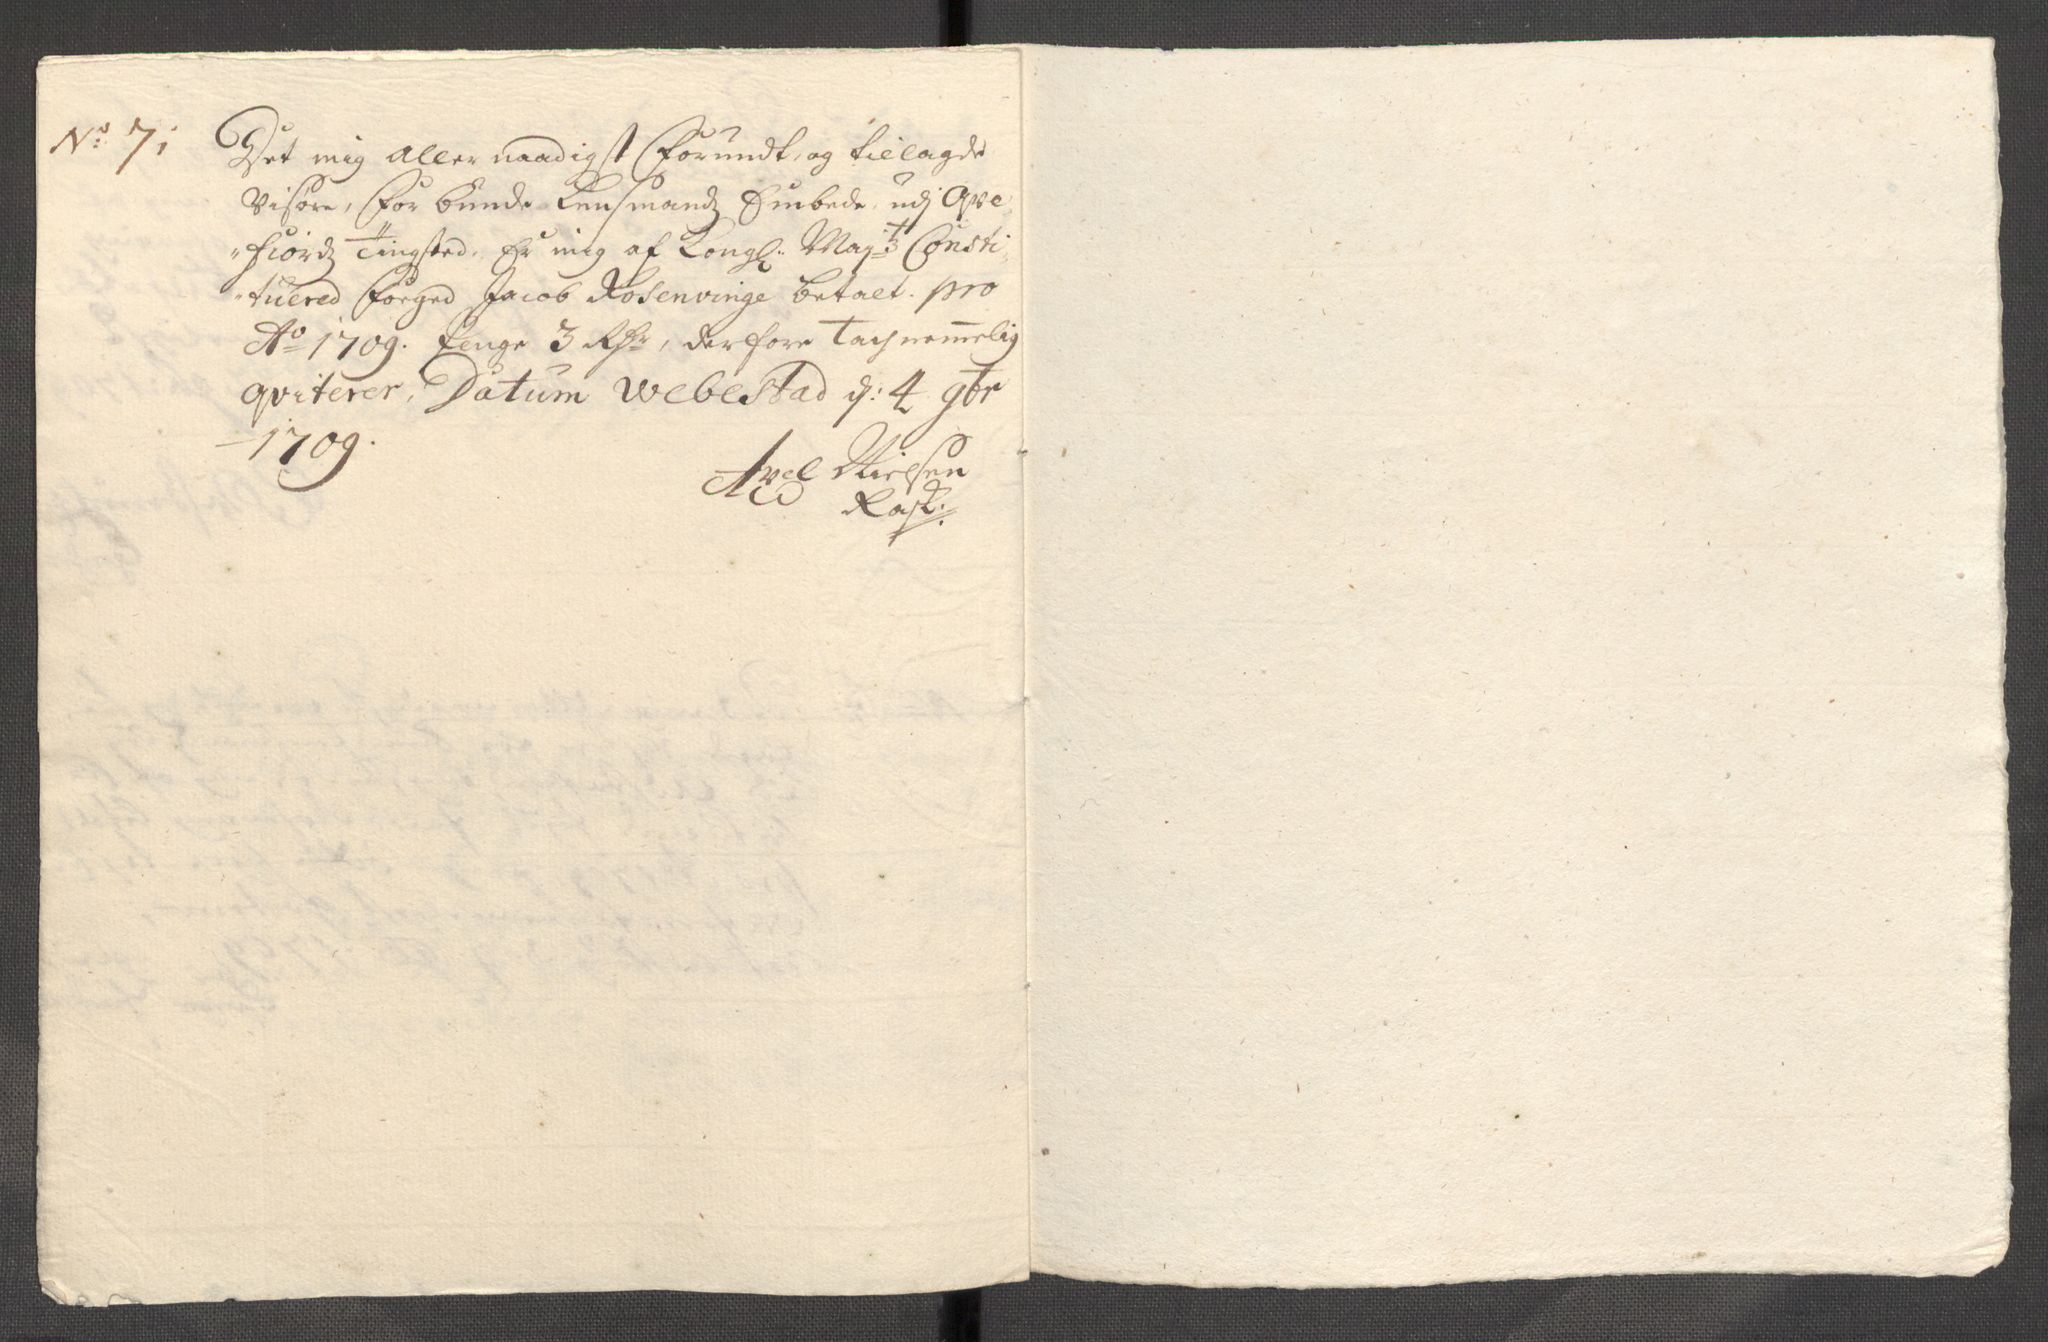 No: 7
Det mig allernaadigst forundt, og tillagde
Visøre, for bunde Lensmandz Embede, udj Qve-
-fiordz Tingsted, Er mig af Kongl: Mayts Consti-
-tuered Foeged Jacob Rosenvinge betalt. pro
Ao 1709. penge 3 Rdr, derfore Tachnemmelig
qviterer, Datum Webestad d: 4 9br
1709.
Axel Nielsen
Rask.